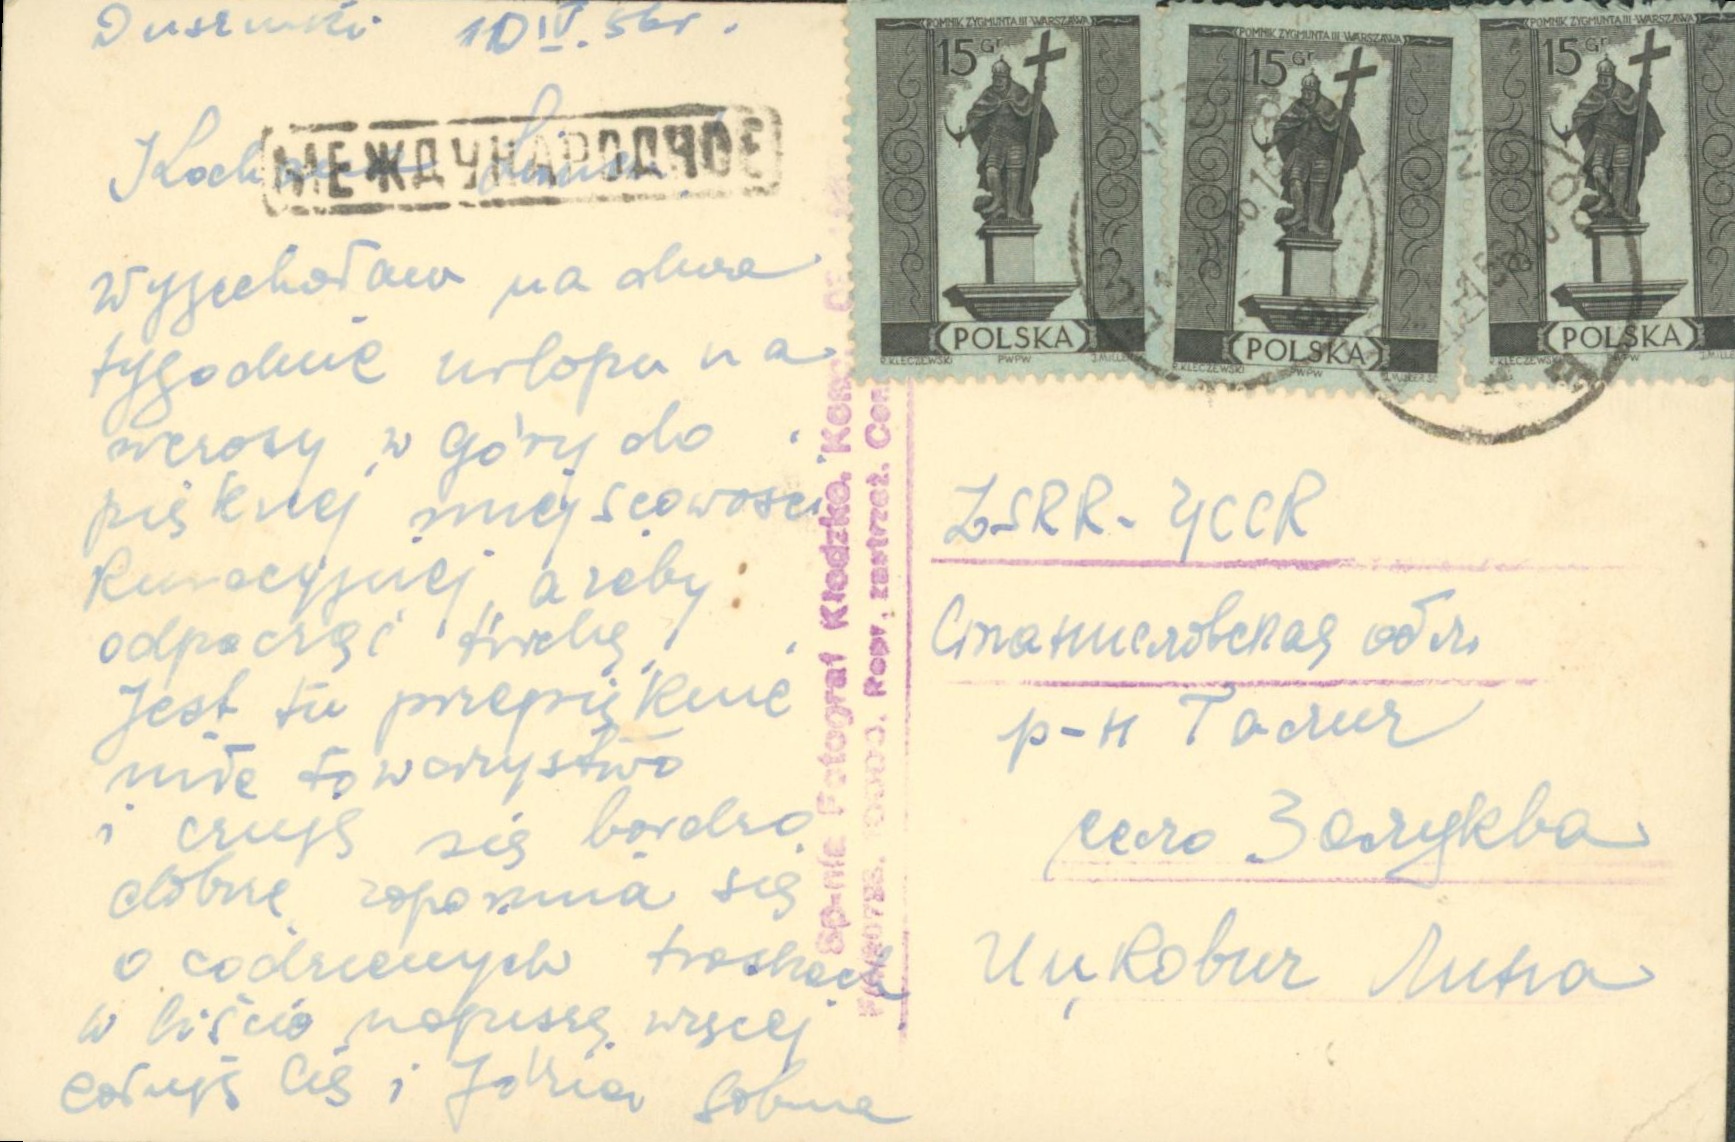 Duszniki 10 IV. 56r.
МЕЖДУНАРОДНОЕ
Kochana
Wyjechałam na dwa
tygodnie urlopu na
wczasy w góry do
pięknej miejscowości
Kuracyjnej, ażeby
odpocząć trochę,
Jest tu przepięknie
miłe towarzystwo
i czuję się bardzo
dobrze zapomina się
o codziennych troskach
w liście napiszę więcej
Całuję Cię i Józia
POMNIK ZYGMUNTA III-WARSZAWA
15 Gr
POLSKA
R.KLECZEWSKI PWPW
POMNIK ZYGMUNTA III-WARSZAWA
15 Gr
POLSKA
R.KLECZEWSKI PWPW
POMNIK ZYGMUNTA III-WARSZAWA
15 Gr
POLSKA
R.KLECZEWSKI PWPW
Sp-nia Fotograf Kłodzko.
Repr. zastrzeż.
ZSRR - УССR
Станиславская обл.
р-н Галич
село Залуквa
Ицкович Лина